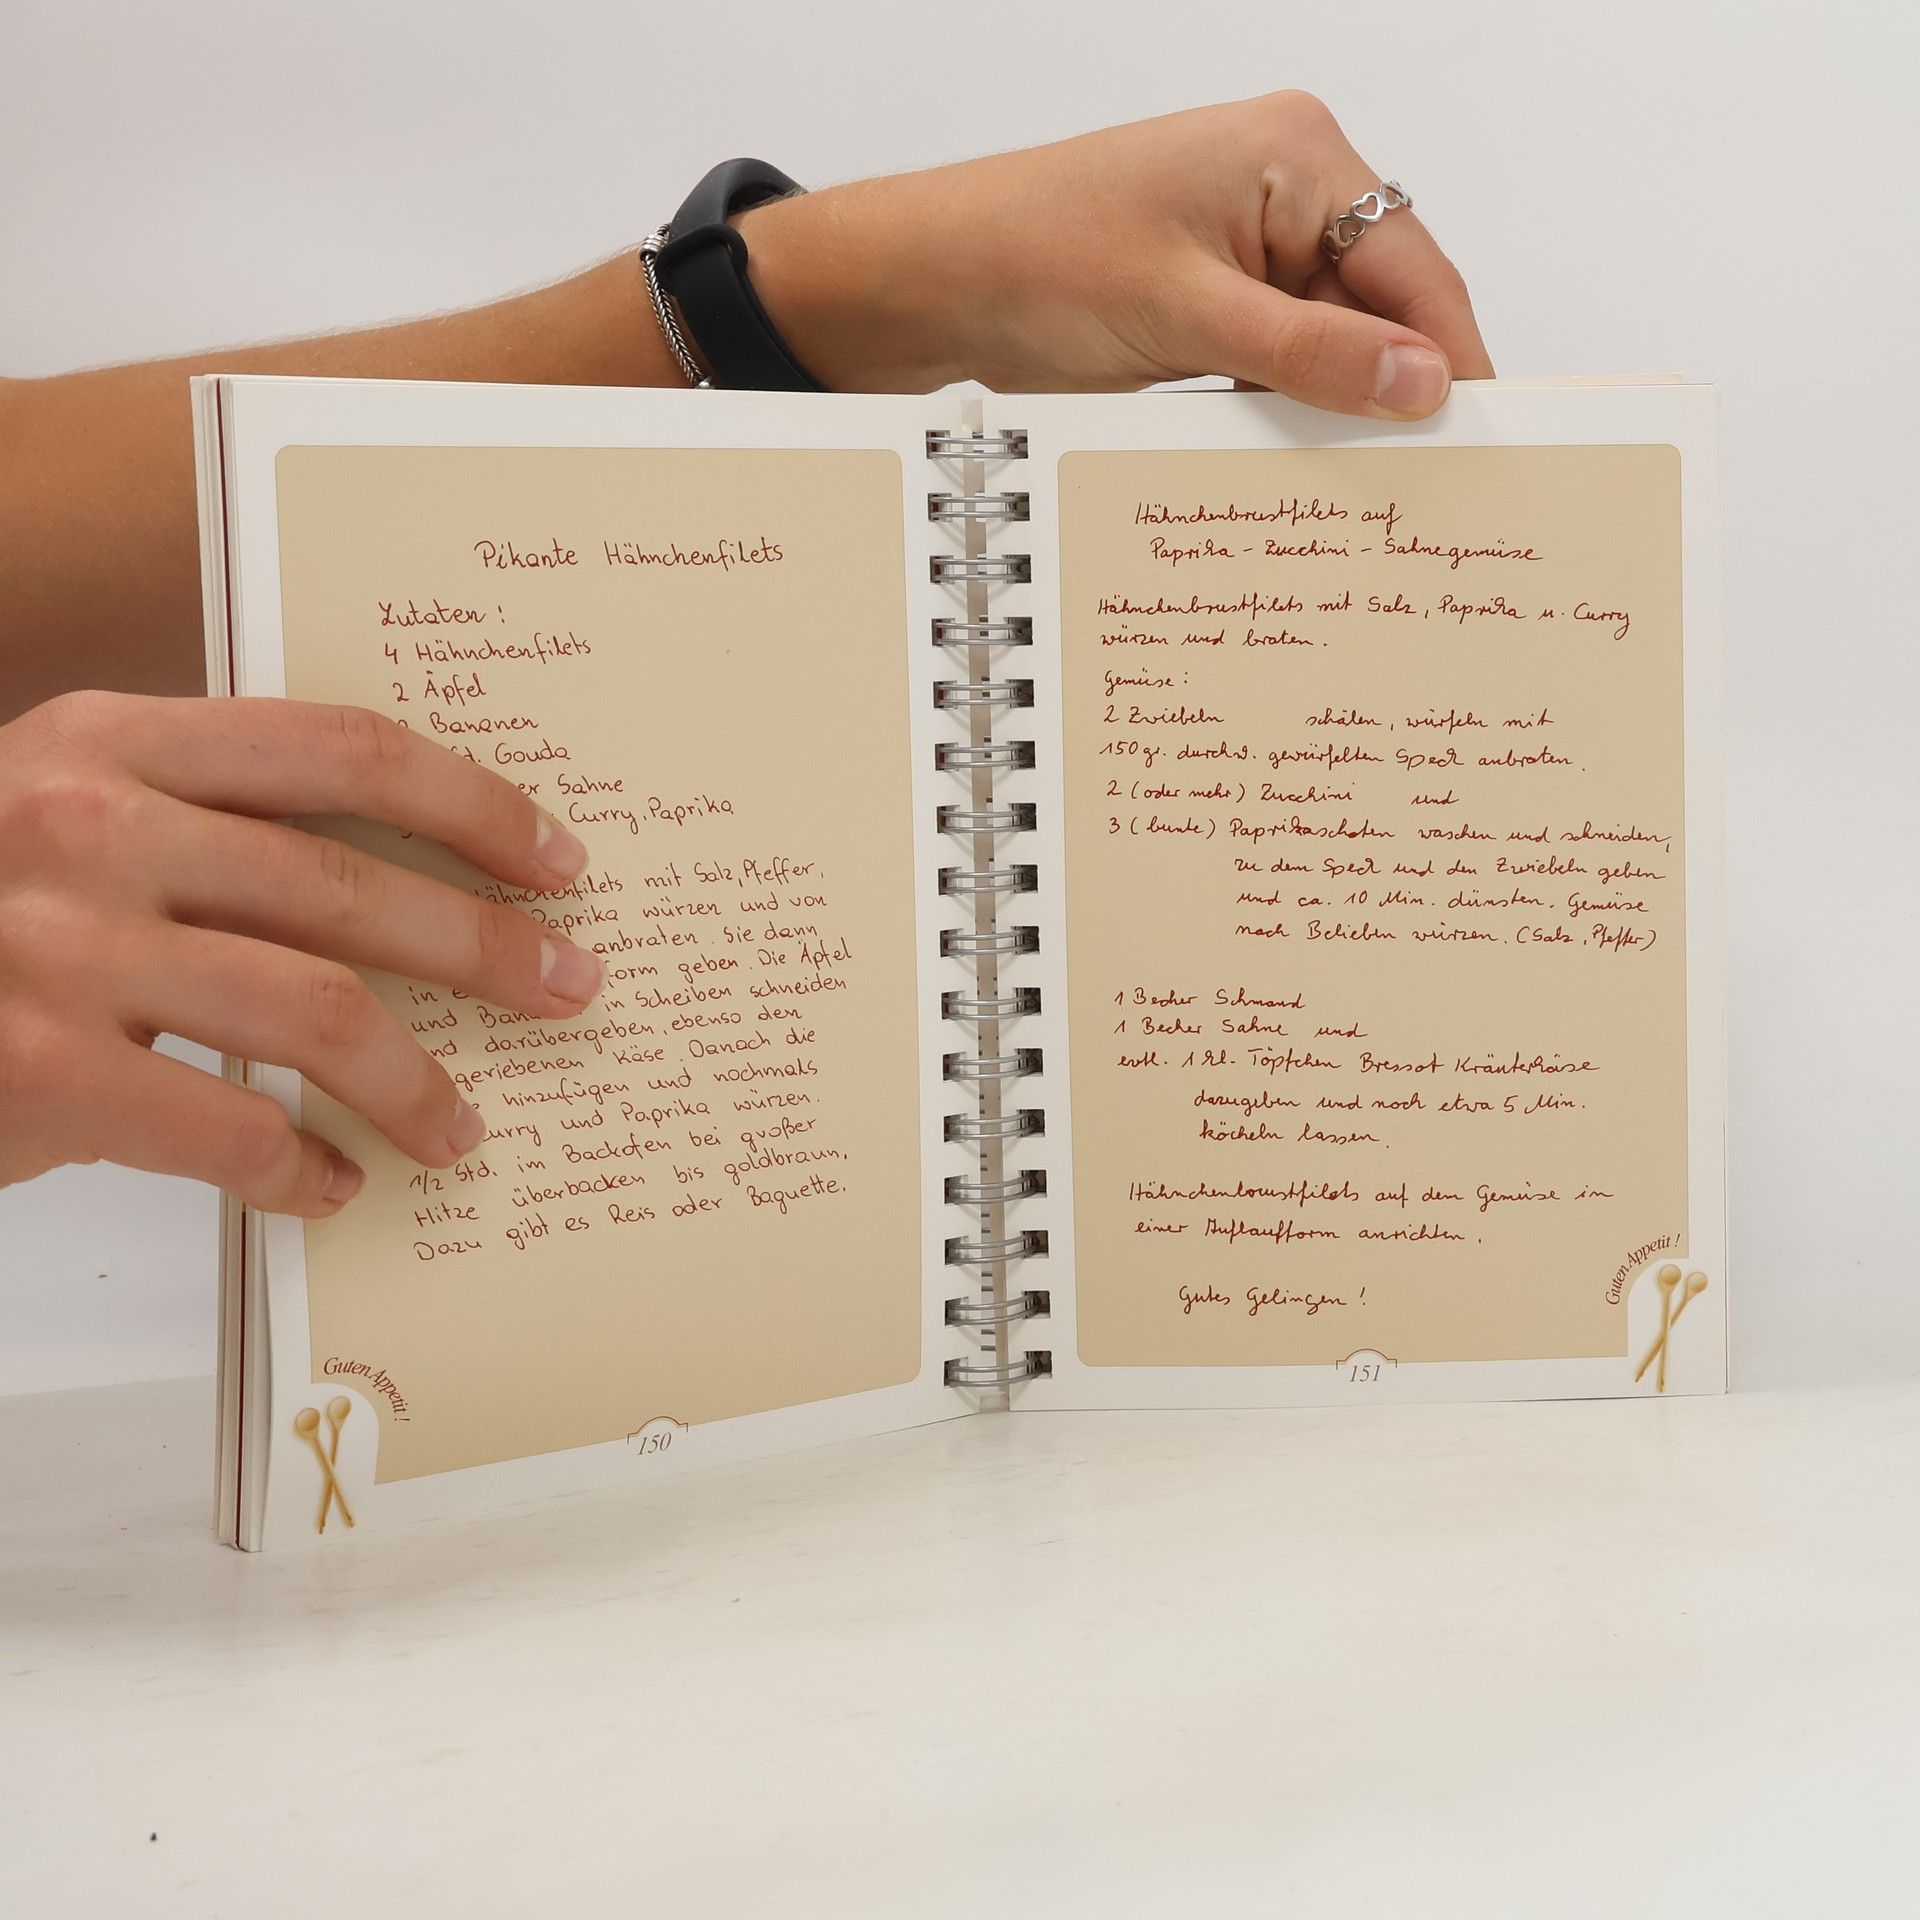 Pikante Hähnchenfilets
Zutaten :
4 Hähnchenfilets
2 Äpfel
Bananen
Gouda
Sahne
Curry, Paprika
mit Salz, Pfeffer,
Paprika würzen und von
anbraten. Sie dann
in geben. Die Äpfel
und in Scheiben schneiden
darübergeben, ebenso den
geriebenen Käse. Danach die
hinzufügen und nochmals
und Paprika würzen.
1/2 Std. im Backofen bei großer
Hitze überbacken bis goldbraun.
Dazu gibt es Reis oder Baguette.
Guten Appetit !
150
Hähnchenbrustfilets auf
Paprika - Zucchini - Sahnegemüse
Hähnchenbrustfilets mit Salz, Paprika u. Curry
würzen und braten.
Gemüse :
2 Zwiebeln schälen, würfeln mit
150 gr. durchw. gewürfelten Speck anbraten.
2 (oder mehr) Zucchini und
3 (bunte) Paprikaschoten waschen und schneiden,
zu dem Speck und den Zwiebeln geben
und ca. 10 Min. dünsten. Gemüse
nach Belieben würzen. (Salz, Pfeffer)
1 Becher Schmand
1 Becher Sahne und
evtl. 1 kl. Töpfchen Bressot Kräuterkäse
dazugeben und noch etwa 5 Min.
köcheln lassen.
Hähnchenbrustfilets auf dem Gemüse in
einer Auflaufform anrichten.
Gutes Gelingen !
Guten Appetit !
151